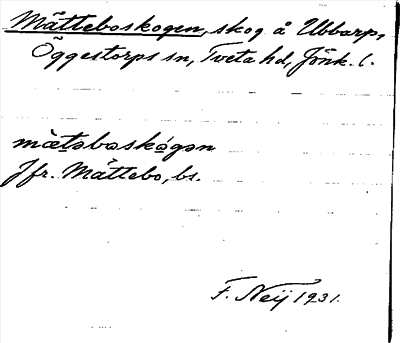 Mätteboskogen, skog å Ubbarp,
Öggestorps sn, Tveta hd, Jönk. l.
mætəboskógən
Jfr. Mättebo, bs.
F. Neij 1931.